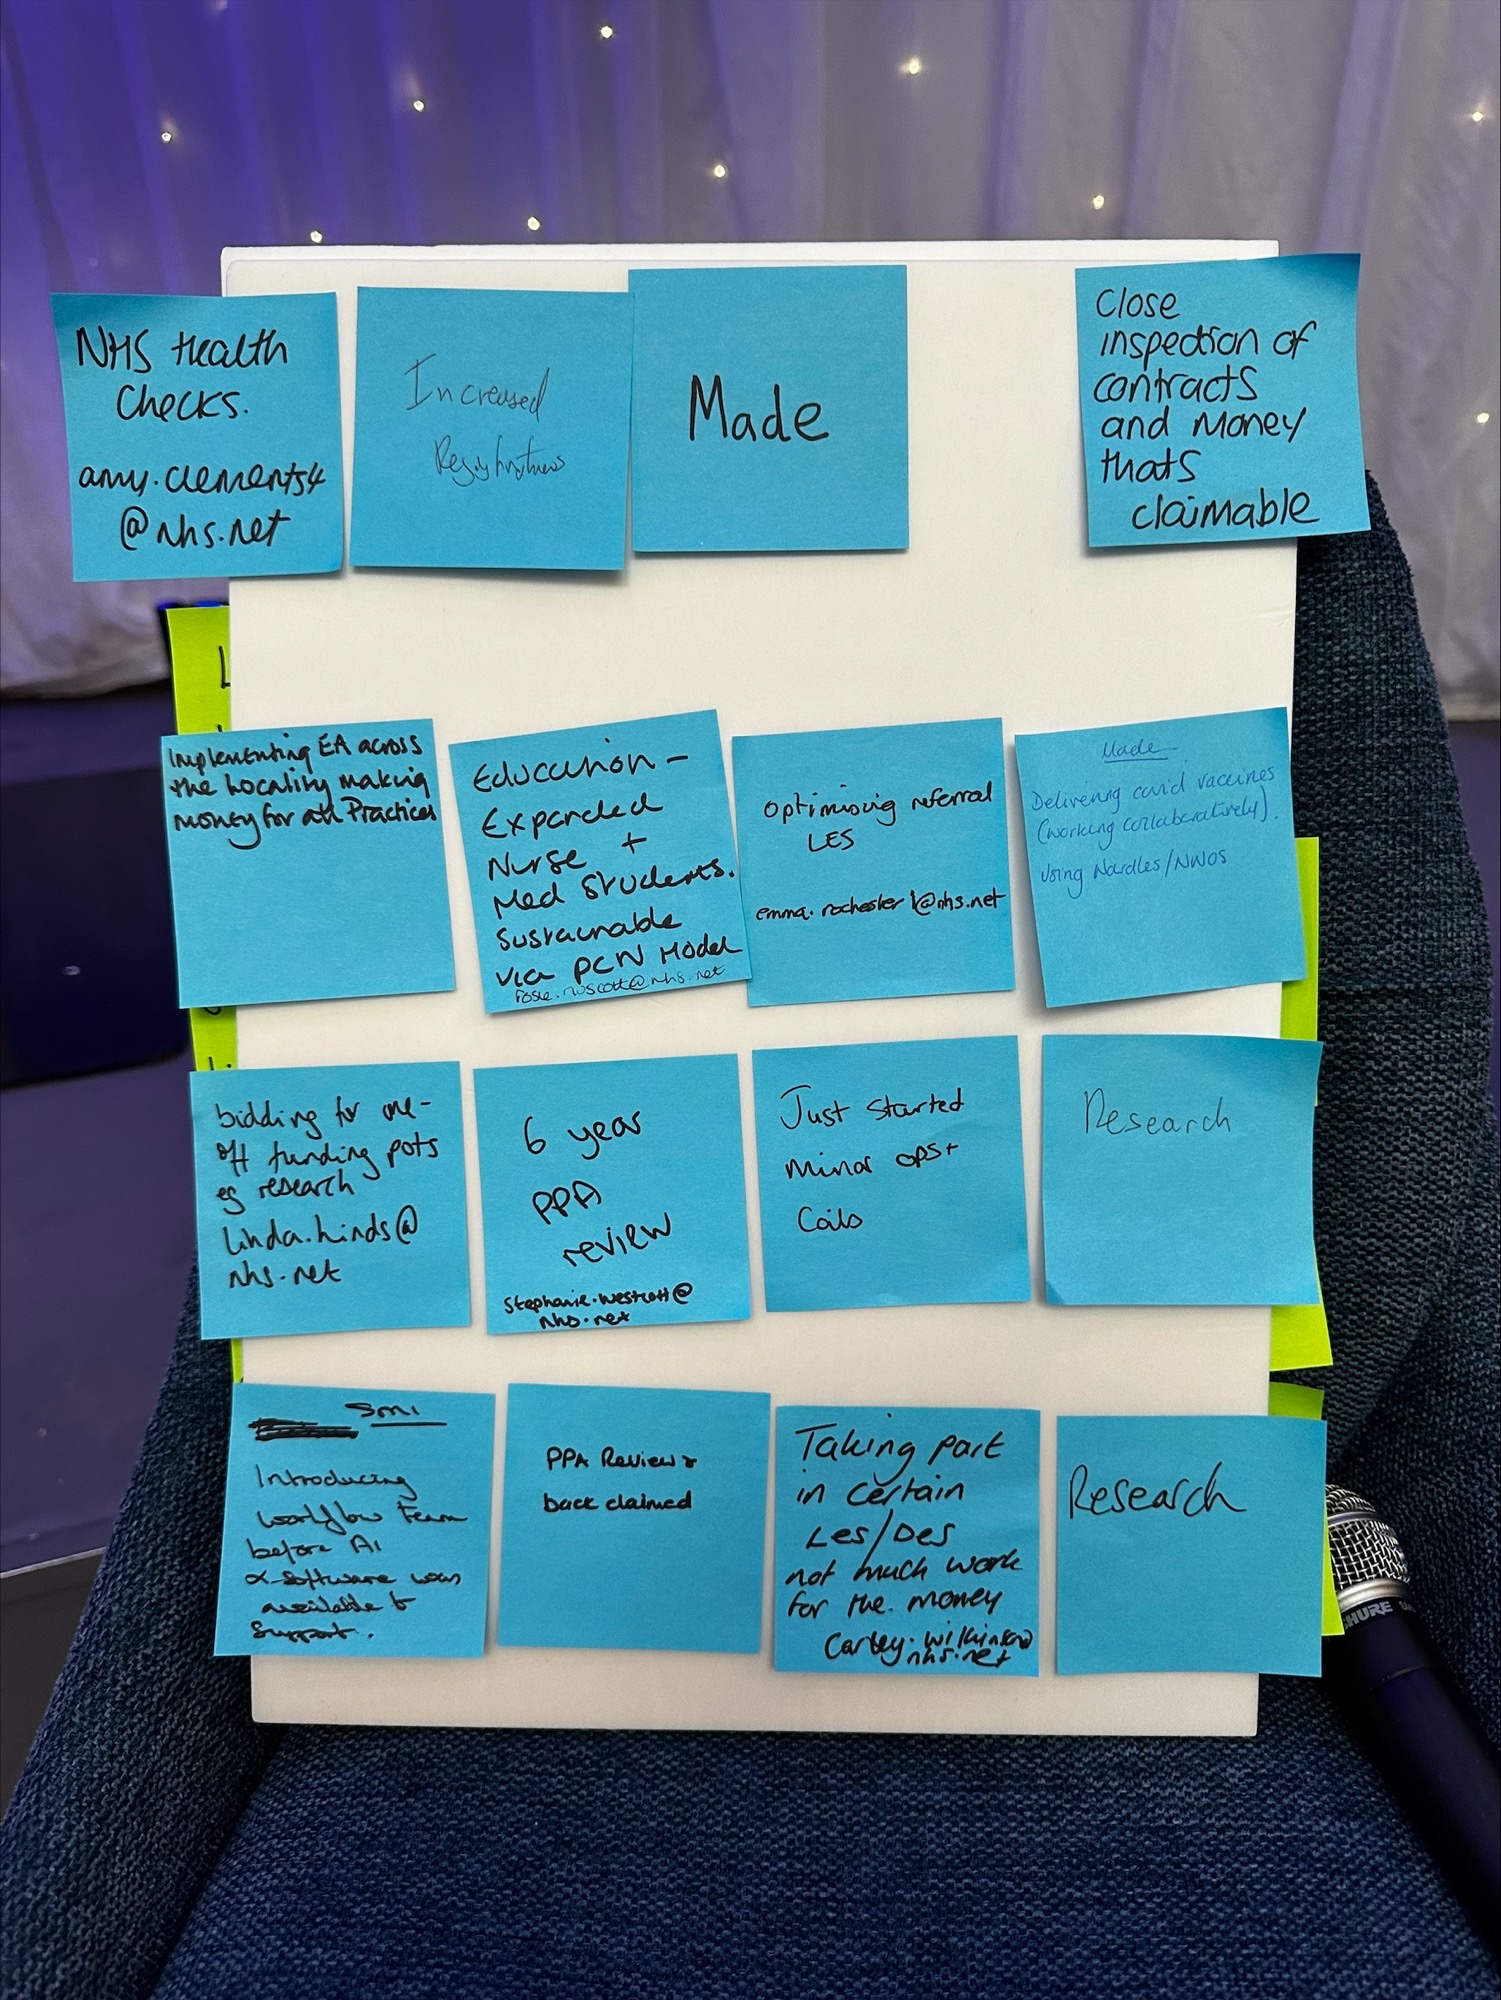 NHS Health
Checks.
amy.clements4
@nhs.net
Increased
Made
Close
inspection of
contracts
and money
thats
claimable
L
Implementing EA across
the locality making
money for all Practices
Education –
Expanded
Nurse +
Med Students.
Sustainable
via PCN Model
@nhs.net
Optimising referral
LES
emma.rochester1@nhs.net
Made
Delivering covid vaccines
(working collaboratively).
Using Nardles/NWOS
bidding for one-
off funding pots
eg research
linda.hinds@
nhs.net
6 year
PPA
review
stephanie.westcott@
nhs.net
Just started
Minor ops +
Coils
Research
SMI
Introducing
workflow team
before AI
software was
available to
support.
PPA Reviews
back claimed
Taking part
in certain
Les/Des
not much work
for the money
Carley.wilkinson@
nhs.net
Research
SHURE